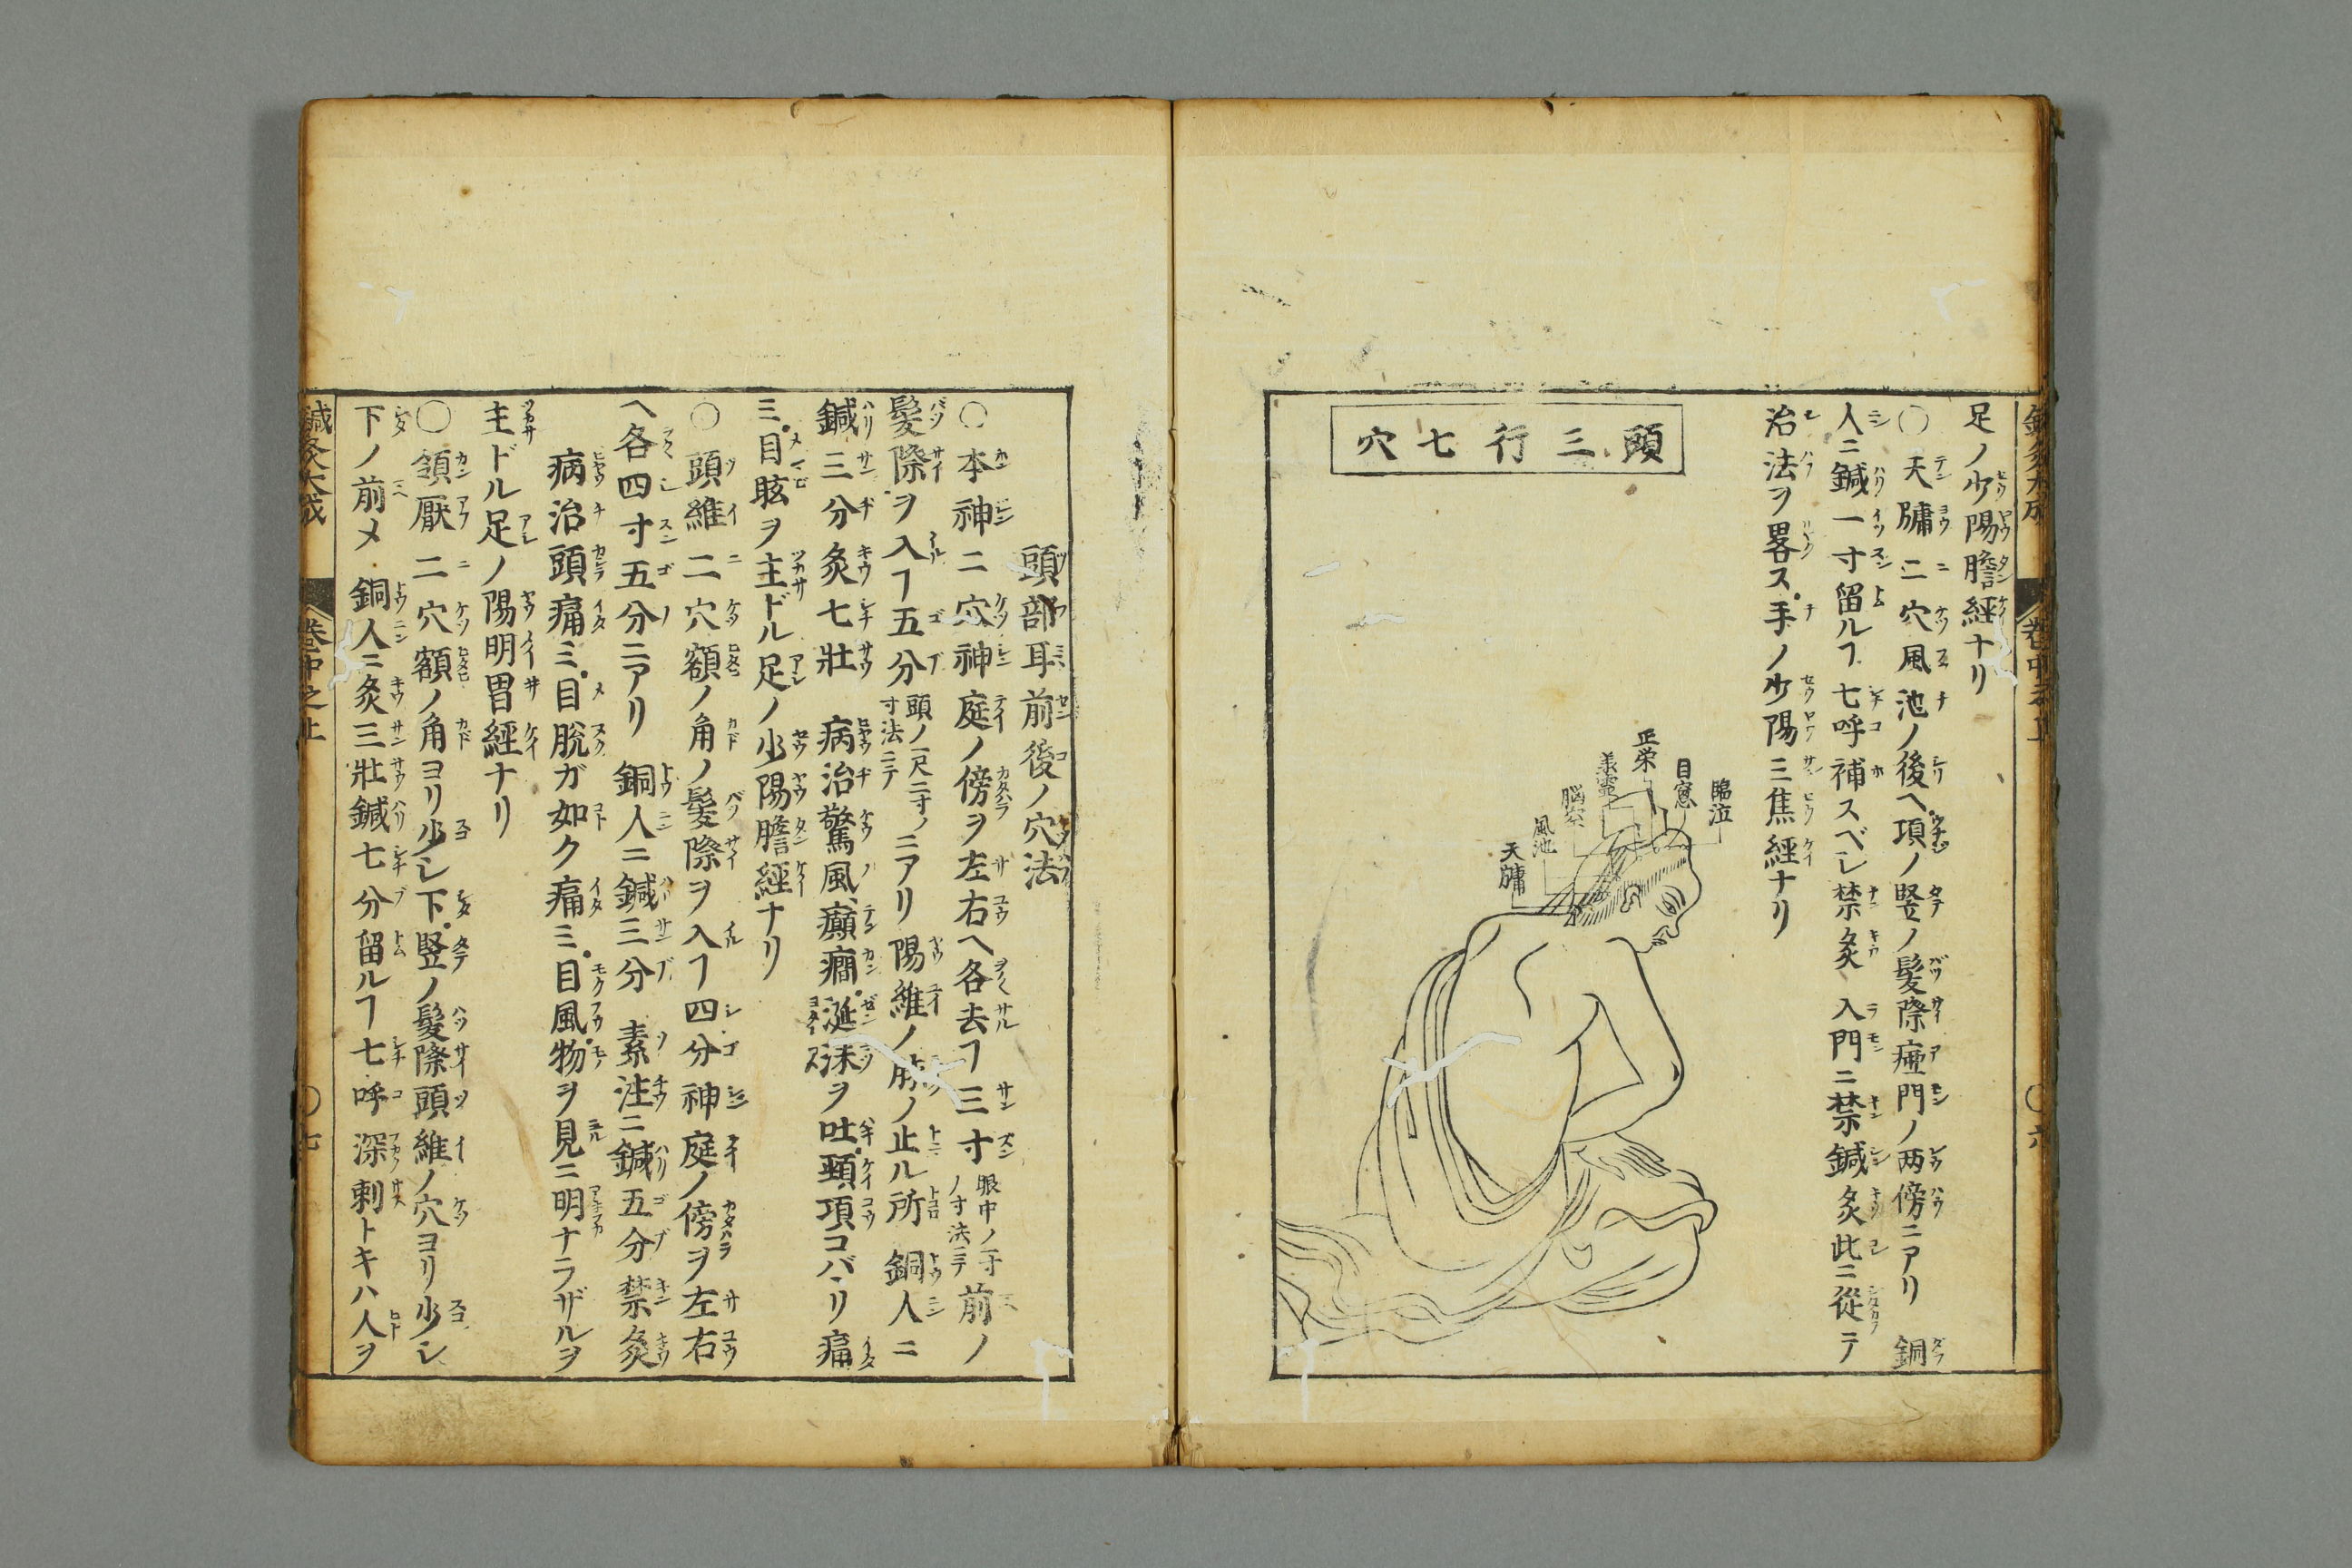 足ノ少陽膽經ナリ
〇天牗二穴風池ノ後ヘ項ノ竪ノ髪際瘂門ノ两傍ニアリ 銅
人ニ鍼一寸留ルヿ七呼補スベシ禁灸 入門ニ禁鍼灸此ニ從テ
治法ヲ畧ス手ノ少陽三焦經ナリ
頭三行七穴
臨泣
目窓
正栄
風池
天牗
卷中之上
〇六
頭部耳前後ノ穴法
〇本神二穴神庭ノ傍ヲ左右ヘ各去ヿ三寸眼中ノ一寸ノ寸法ニテ前ノ
髪際ヲ入ヿ五分頭ノ一尺二寸ノ寸法ニテニアリ陽維ノ脉ノ止ル所 銅人ニ
鍼三分灸七壯 病治驚風癲癇涎沫ヲ吐頸項コバリ痛
ミ目眩ヲ主ドル足ノ少陽膽經ナリ
〇頭維二穴額ノ角ノ髪際ヲ入ヿ四分神庭ノ傍ヲ左右
ヘ各四寸五分ニアリ 銅人ニ鍼三分 素注ニ鍼五分禁灸
病治頭痛ミ目脱ガ如ク痛ミ目風物ヲ見ニ明ナラザルヲ
主ドル足ノ陽明胃經ナリ
〇頷厭二穴額ノ角ヨリ少シ下竪ノ髪際頭維ノ穴ヨリ少シ
下ノ前メ 銅人ニ灸三壯鍼七分留ルヿ七呼深刺トキハ人ヲ
鍼灸大成
卷中之上
〇七